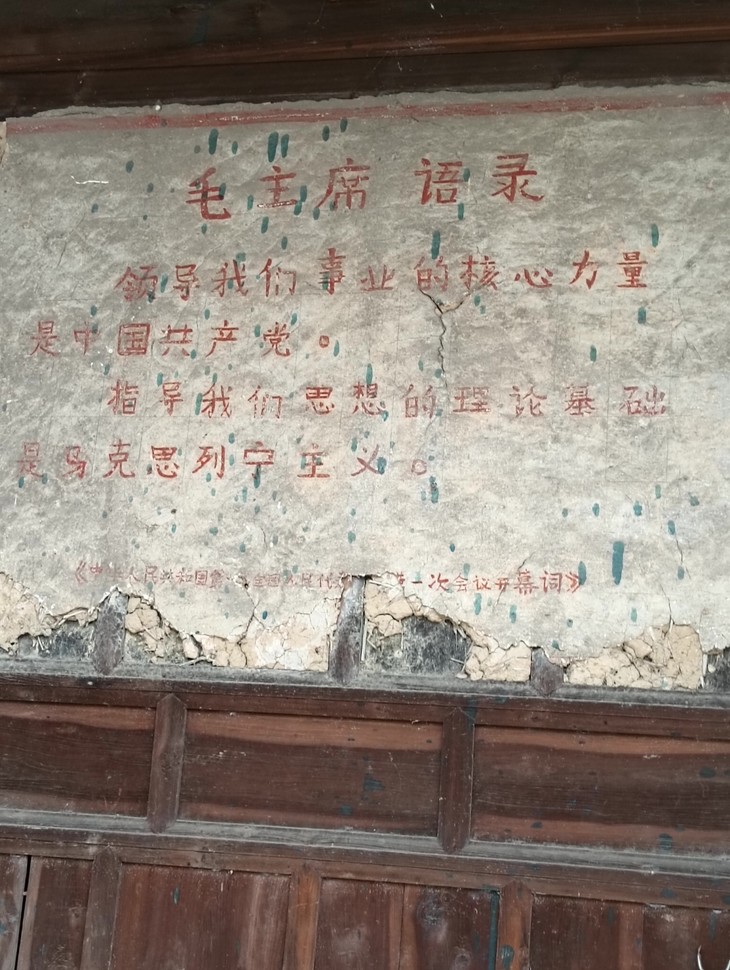 毛主席 语录
领导我们事业的核心力量
是中国共产党。
指导我们思想的理论基础
是马克思列宁主义。
《中华人民共和国第 全国人民代 第一次会议开幕词》